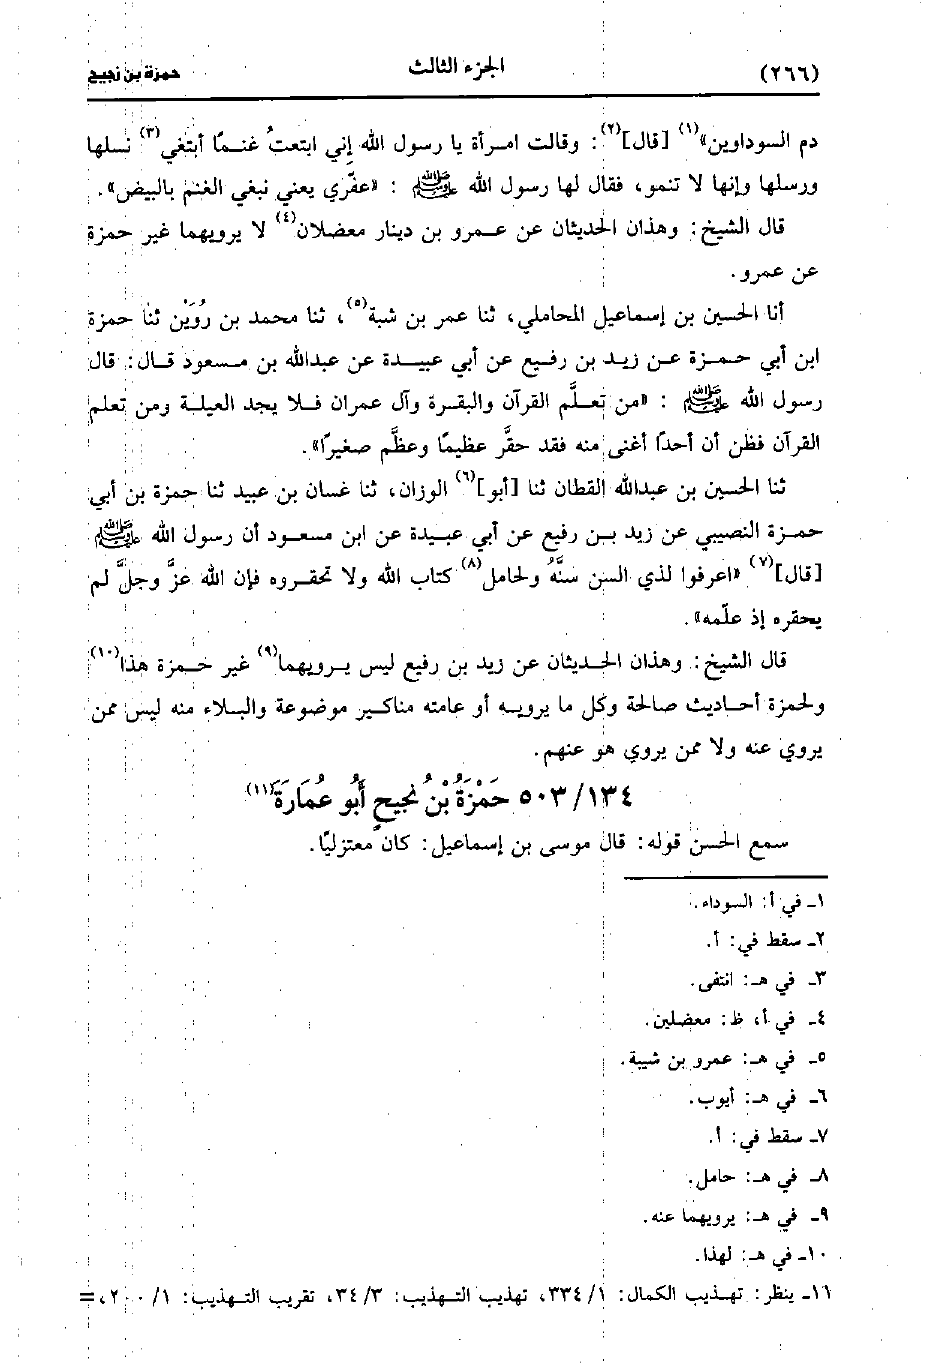 (٢٦٦) الجزء الثالث حمزة بن نجيح
دم السوداوين»(١) [قال](٢): وقالت امرأة يا رسول الله إني ابتعتُ غنمًا أبتغي(٣) نسلها
ورسلها وإنها لا تنمو، فقال لها رسول الله ﷺ : «عفّري يعني نبغي الغنم بالبيض».
قال الشيخ: وهذان الحديثان عن عمرو بن دينار معضلان(٤) لا يرويهما غير حمزة
عن عمرو.
أنا الحسين بن إسماعيل المحاملي، ثنا عمر بن شبة(٥)، ثنا محمد بن رُوَيْن ثنا حمزة
ابن أبي حمزة عن زيد بن رفيع عن أبي عبيدة عن عبدالله بن مسعود قال: قال
رسول الله ﷺ : «من تعلَّم القرآن والبقرة وآل عمران فلا يجد العيلة ومن تعلم
القرآن فظن أن أحدًا أغنى منه فقد حقَّر عظيمًا وعظَّم صغيرًا».
ثنا الحسين بن عبدالله القطان ثنا [أبو](٦) الوزان، ثنا غسان بن عبيد ثنا حمزة بن أبي
حمزة النصيبي عن زيد بن رفيع عن أبي عبيدة عن ابن مسعود أن رسول الله ﷺ
[قال](٧) «اعرفوا لذي السن سنَّهُ ولحامل(٨) كتاب الله ولا تحقروه فإن الله عزَّ وجلَّ لم
يحقره إذ علّمه».
قال الشيخ: وهذان الحديثان عن زيد بن رفيع ليس يرويهما(٩) غير حمزة هذا(١٠)
ولحمزة أحاديث صالحة وكل ما يرويه أو عامته مناكير موضوعة والبلاء منه ليس ممن
يروي عنه ولا ممن يروي هو عنهم.
٥٠٣/١٣٤ حَمْزَةُ بْنُ نجيحٍ أَبُو عُمَارَةَ(١١)
سمع الحسن قوله: قال موسى بن إسماعيل: كان معتزليًا.
١ـ في أ: السوداء.
٢ـ سقط في: أ.
٣ـ في هـ: انتفى.
٤ـ في أ، ظ: معضلين.
٥ـ في هـ: عمرو بن شيبة.
٦ـ في هـ: أيوب.
٧ـ سقط في: أ.
٨ـ في هـ: حامل.
٩ـ في هـ: يرويهما عنه.
١٠ـ في هـ: لهذا.
١١ـ ينظر: تهذيب الكمال: ٣٣٤/١، تهذيب التهذيب: ٣٤/٣، تقريب التهذيب: ٢٠٠/١، =